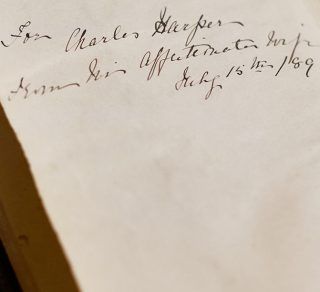 For Charles Harper
From his affectionate Wife
July 15th /89